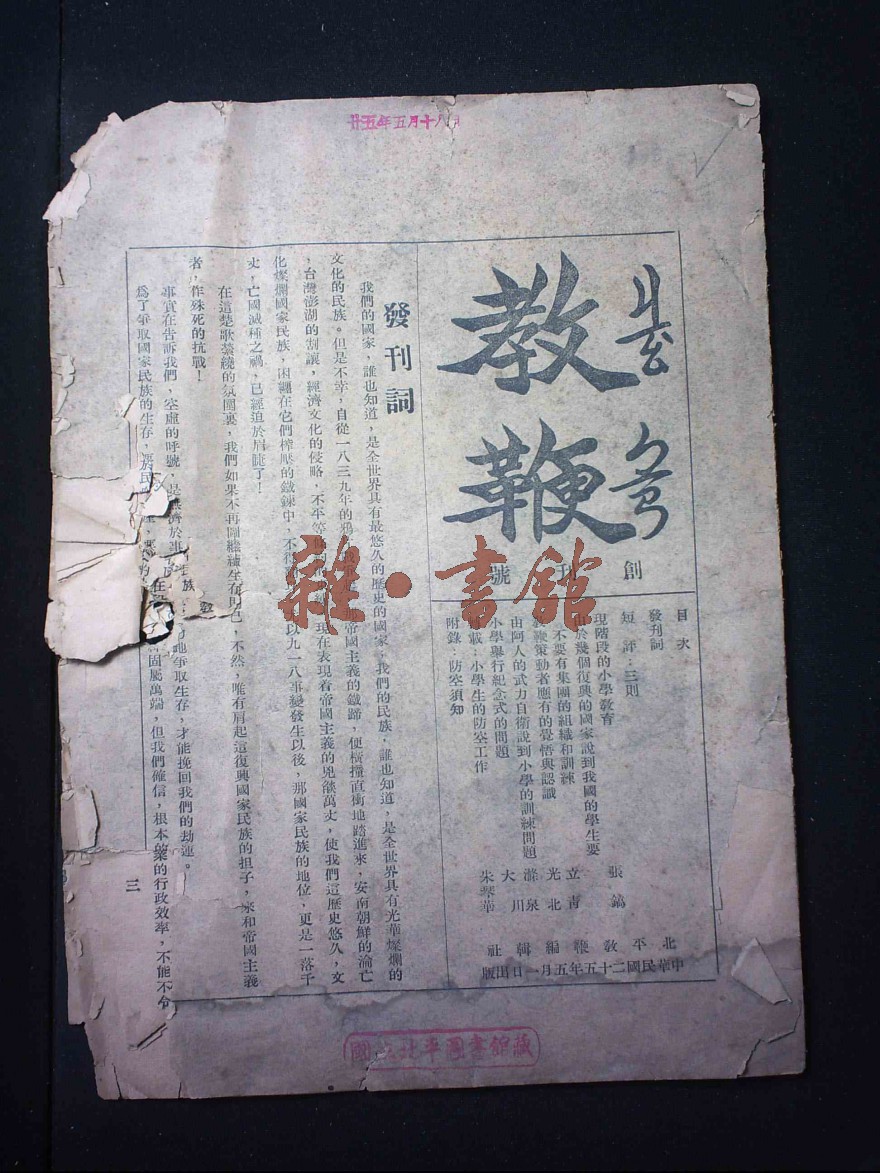 廿五年五月十八日
教鞭
創刊號
目次
發刊詞
短評:三則
現階段的小學教育
由於幾個復興的國家說到我國的學生要
不要有集團的組織和訓練
教鞭策動者應有的覺悟與認識
由阿人的武力自衛說到小學的訓練問題
小學舉行紀念式的問題
載:小學生的防空工作
附錄:防空須知
張鏑
立青
光北
滌泉
大川
朱琴華
北平教鞭編輯社
中華民國二十五年五月一日出版
發刊詞
我們的國家,誰也知道,是全世界具有最悠久的歷史的國家,我們的民族,誰也知道,是全世界具有光華燦爛的
文化的民族。但是不幸,自從一八三九年的鴉
帝國主義的鐵蹄,便橫攔直衝地踏進來,安南朝鮮的淪亡
,台灣澎湖的割讓,經濟文化的侵略,不平等
現在表現着帝國主義的兇燄萬丈,使我們這歷史悠久,文
化燦爛國家民族,困纏在它們榨壓的鐵鍊中,不得
以九一八事變發生以後,那國家民族的地位,更是一落千
丈,亡國滅種之禍,已經迫於眉睫了!
在這楚歌縈繞的氛圍裏,我們如果不再圖繼續生存則已,不然,唯有肩起這復興國家民族的担子,來和帝國主義
者,作殊死的抗戰!
事實在告訴我們,空虛的呼號,是無濟於事
地爭取生存,才能挽回我們的劫運。
爲了爭取國家民族的生存,
固屬萬端,但我們確信,根本的
的行政效率,不能不令
三
國立北平圖書館藏
雜·書館